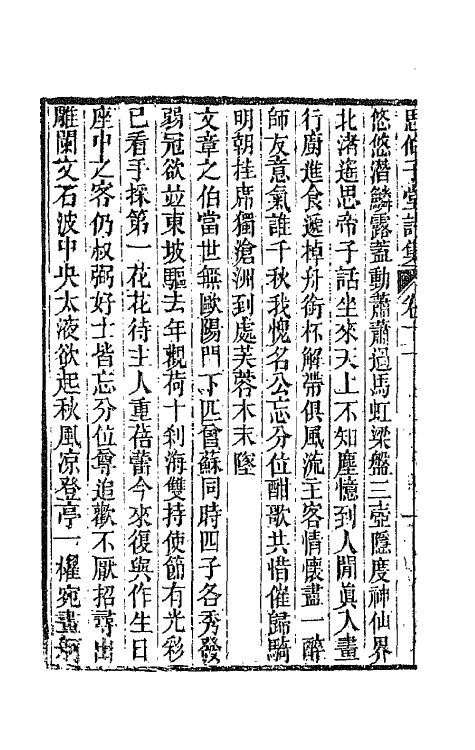 思伯子堂詩集 卷十二
悠悠潛鱗露蓋動蕭蕭過馬虹梁盤三壺隱度神仙界
北渚遙思帝子話坐來天上不知塵憶到人閒眞入畫
行廚進食遞棹舟銜杯解帶俱風流主客情懷盡一醉
師友意氣誰千秋我愧名公忘分位酣歌共惜催歸騎
明朝挂席獨滄洲到處芙蓉木末墜
文章之伯當世無歐陽門下匹曾蘇同時四子各秀發
弱冠欲並東坡驅去年觀荷十刹海雙持使節有光彩
已看手採第一花花待主人重蓓蕾今來復與作生日
座中之客仍叔弼好士皆忘分位尊追歡不厭招尋出
雕闌文石波中央太液欲起秋風凉登亭一櫂宛畫